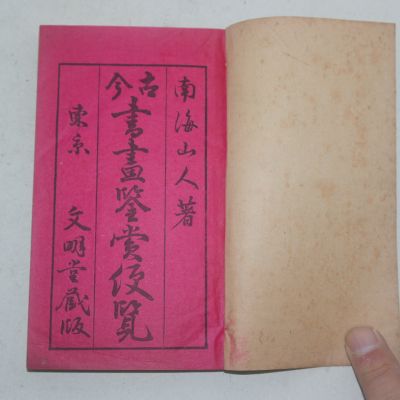 南海山人著
古今
書畫鑒賞便覧
東京 文明堂蔵版